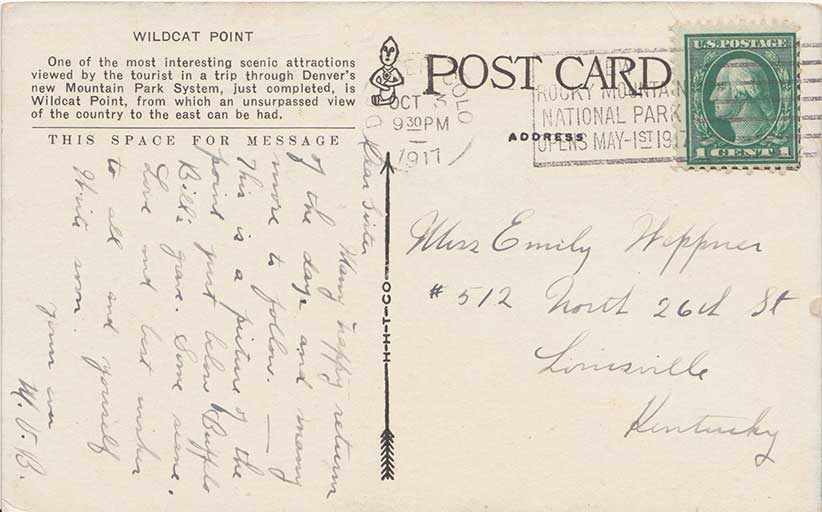 WILDCAT POINT
One of the most interesting scenic attractions
viewed by the tourist in a trip through Denver's
new Mountain Park System, just completed, is
Wildcat Point, from which an unsurpassed view
of the country to the east can be had.
THIS SPACE FOR MESSAGE
POST CARD
ADDRESS
OCT 3
930PM
1917
COLO
ROCKY MOUNTAIN
NATIONAL PARK
OPENS MAY-1ST 1917
U.S. POSTAGE
1 CENT 1
H-H-T-CO
Dear Sister
Many happy return
of the day and many
more to follow. —
This is a picture of the
point just below Buffalo
Bill's grave. Some scene.
Love and best wishes
to all and yourself
Write soon.
M. V. B.
Miss Emily Weppner
#512 North 26th St
Louisville
Kentucky